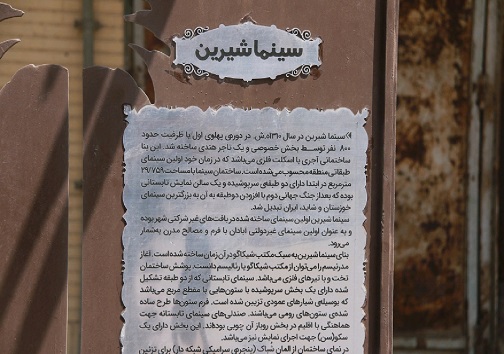 سینما شیرین
سینما شیرین در سال ۱۳۱۰ه.ش. در دوره‌ی پهلوی اول با ظرفیت حدود
۸۰۰ نفر توسط بخش خصوصی و یک تاجر هندی ساخته شد. این بنا
ساختمانی آجری با اسکلت فلزی می‌باشد که در زمان خود اولین سینمای
طبقاتی منطقه محسوب می‌شده است. ساختمان سینما با مساحت ۲۹/۷۵۹
مترمربع در ابتدا دارای دو طبقه‌ی سرپوشیده و یک سالن نمایش تابستانی
بوده که بعد از جنگ جهانی دوم با افزودن دوطبقه به آن به بزرگترین سینمای
خوزستان و شاید، ایران تبدیل شد.
سینما شیرین اولین سینمای ساخته شده در بافت‌های غیر شرکتی شهر بوده
و به عنوان اولین سینمای غیردولتی آبادان با فرم و مصالح مدرن به‌شمار
می‌رود.
بنای سینما شیرین به سبک مکتب شیکاگو در آن زمان ساخته شده است. آغاز
مدرنیسم را می‌توان از مکتب شیکاگو یا رئالیسم دانست. پوشش ساختمان
تخت و با تیرهای فلزی می‌باشد. سینمای تابستانی که از دو طبقه تشکیل
شده دارای یک بخش سرپوشیده با ستون‌هایی با مقطع مربع می‌باشد
که بوسیله‌ی شیارهای عمودی تزیین شده است. فرم ستون‌ها طرح ساده
شده‌ی ستون‌های رومی می‌باشند. صندلی‌های سینمای تابستانه جهت
هماهنگی با اقلیم در بخش روباز آن چوبی بوده‌اند. این بخش دارای یک
سکو(سن) جهت اجرای نمایش نیز می‌باشد.
در نمای ساختمان از المان شباک (پنجره‌ی سرامیکی شبکه دار) برای تزئین